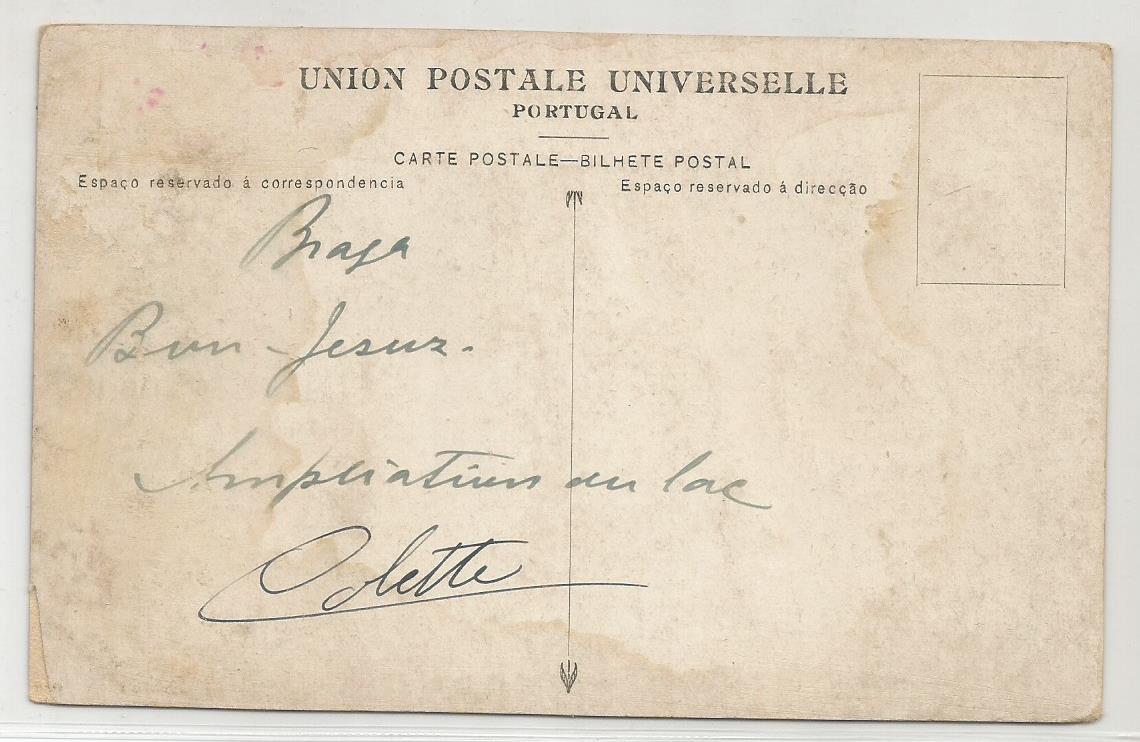 UNION POSTALE UNIVERSELLE
PORTUGAL
CARTE POSTALE—BILHETE POSTAL
Espaço reservado á correspondencia
Espaço reservado á direcção
Braga
Bon-Jesuz.
Ampliation du lac
Colette